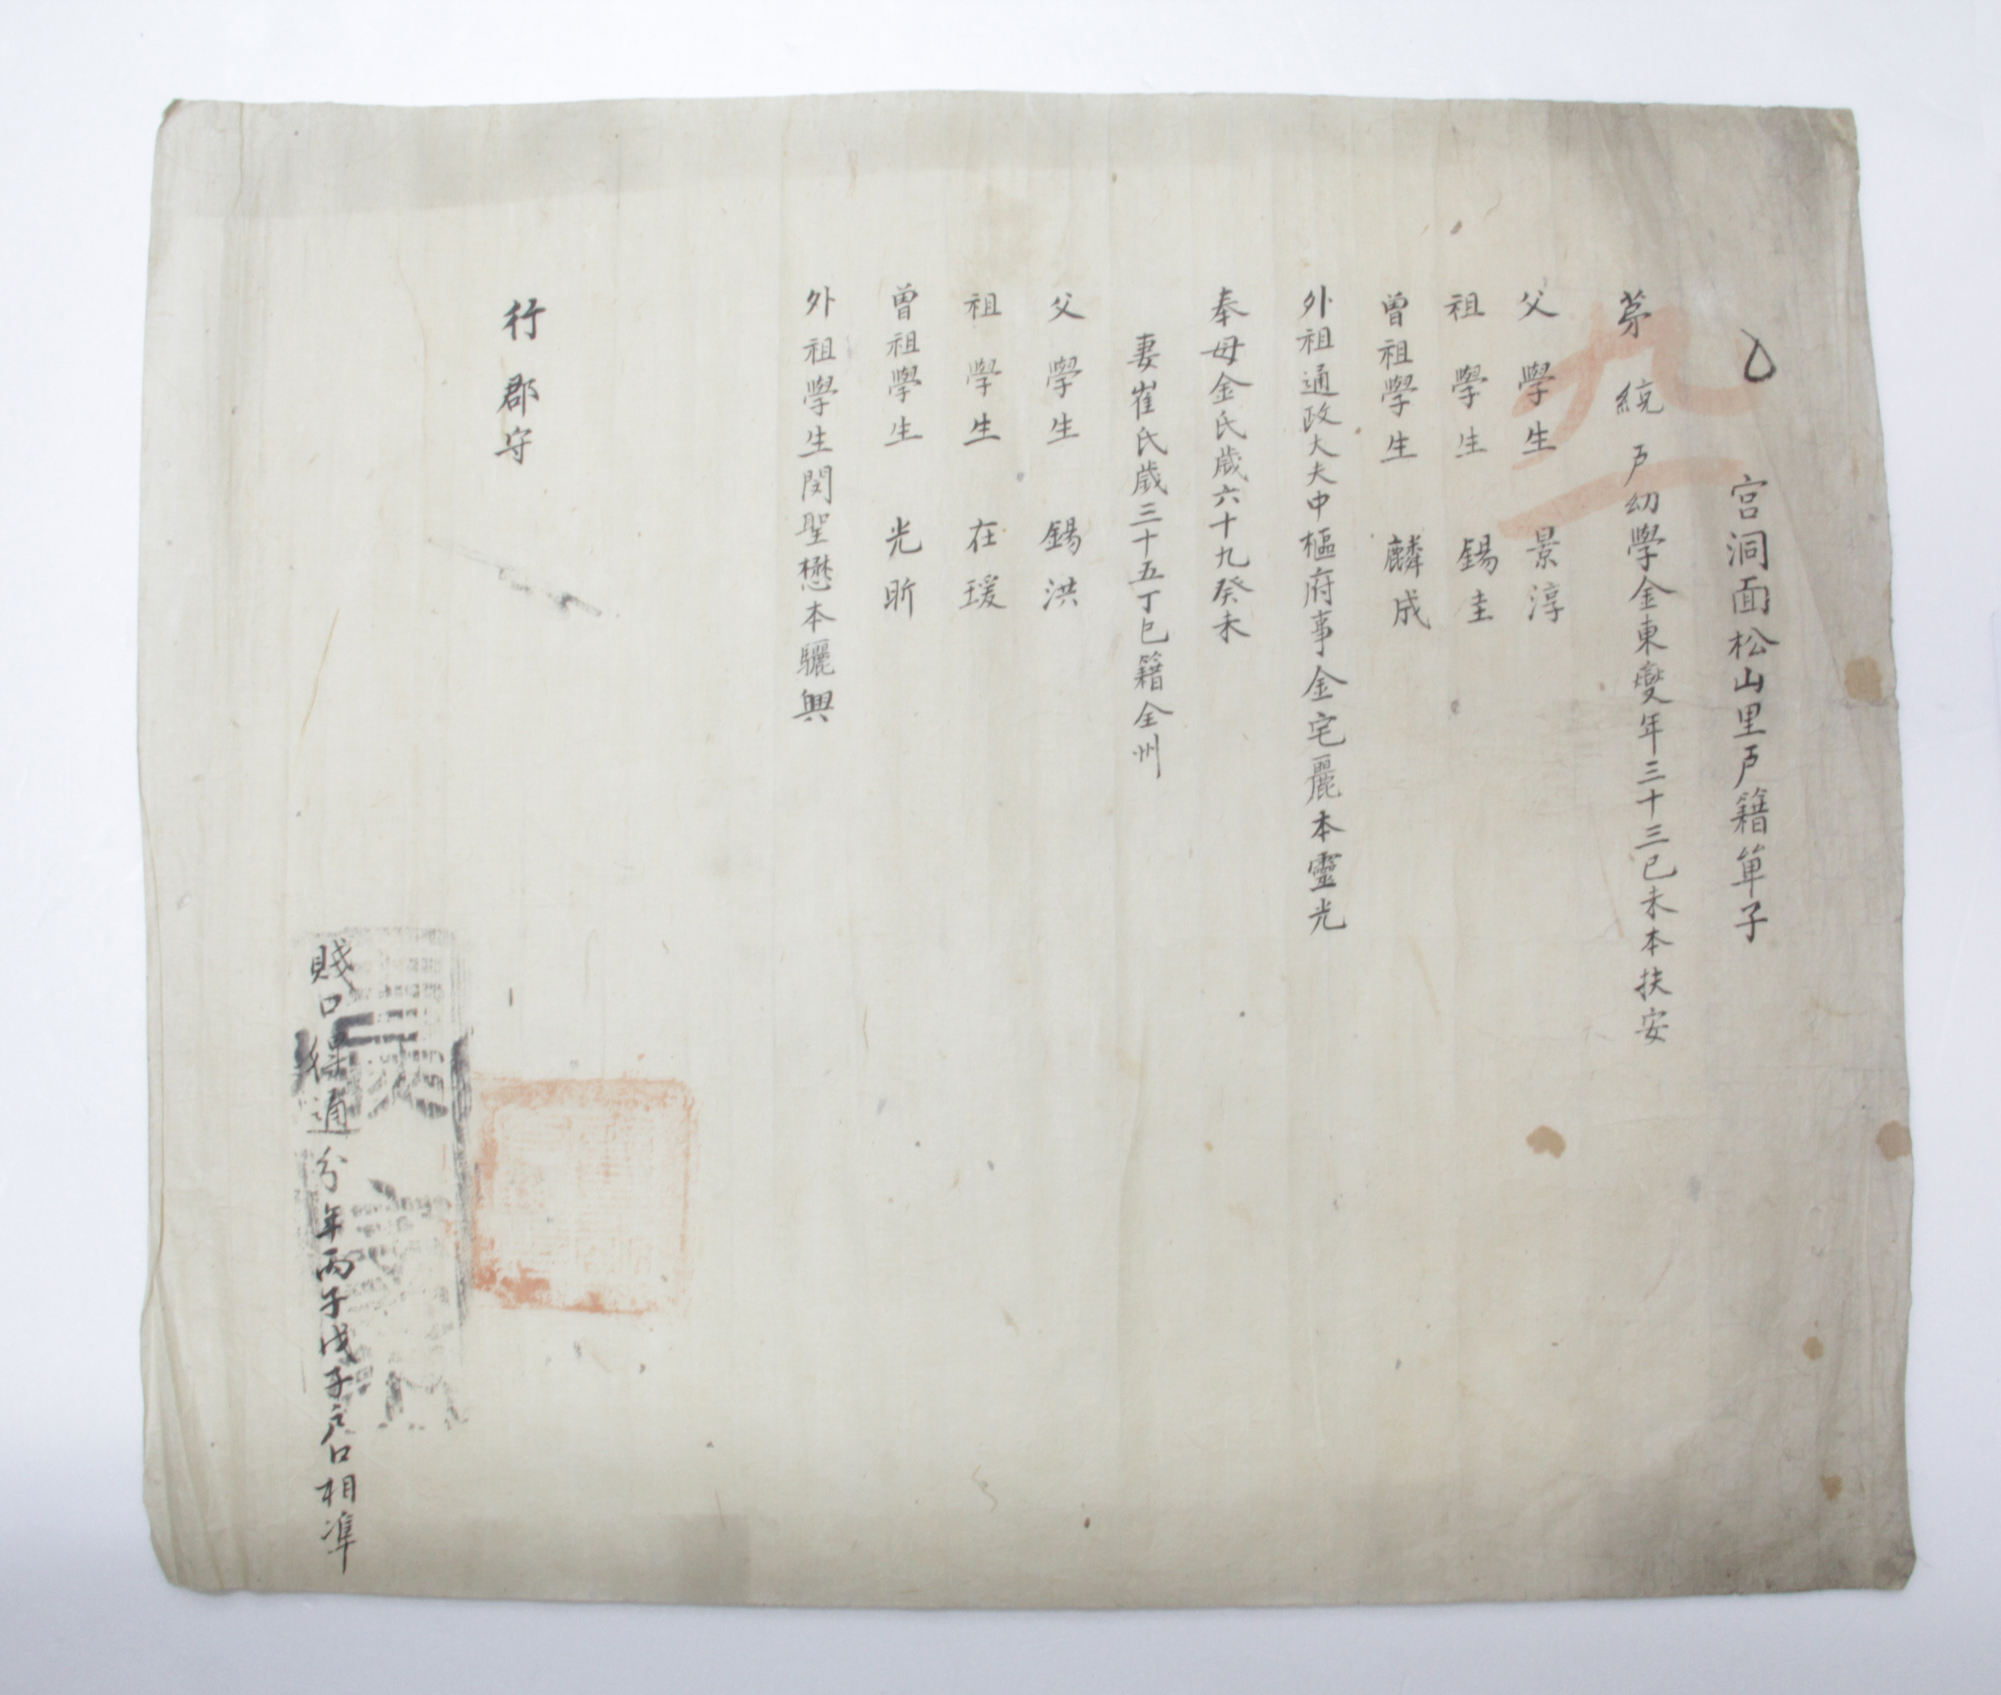 宮洞面松山里戶籍單子
第 統 戶幼學金東燮年三十三己未本扶安
父 學生 景淳
祖 學生 錫圭
曾祖學生 麟成
外祖通政大夫中樞府事金宅麗本靈光
奉母金氏歲六十九癸未
妻崔氏歲三十五丁巳籍全州
父 學生 錫洪
祖 學生 在瑗
曾祖學生 光昕
外祖學生閔聖懋本驪興
行郡守
賤口 分年丙子戊子戶口相準
九